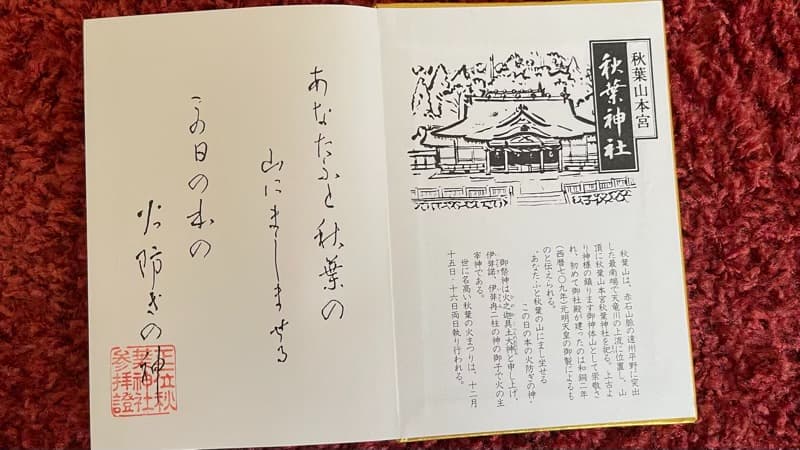 秋葉山本宮
秋葉神社
秋葉山は、赤石山脈の遠州平野に突出
した最南端で天竜川の上流に位置し、山
頂に秋葉山本宮秋葉神社を祀る。上古よ
り神様の鎮ります御神体山として崇敬さ
れ、初めて御社殿が建ったのは和銅二年
(西暦七〇九年)元明天皇の御製によるも
のと伝えられる。
あなたふと秋葉の山にまし坐せる
この日の本の火防ぎの神
御祭神は火之迦具土大神と申し上げ、
伊弉諾、伊弉冉二柱の神の御子で火の主
宰神である。
世に名高い秋葉の火まつりは、十二月
十五日・十六日両日執り行われる。
あなたふと秋葉の
山にまし坐せる
この日の本の
火防ぎの神
正一位秋
葉神社
参拝證